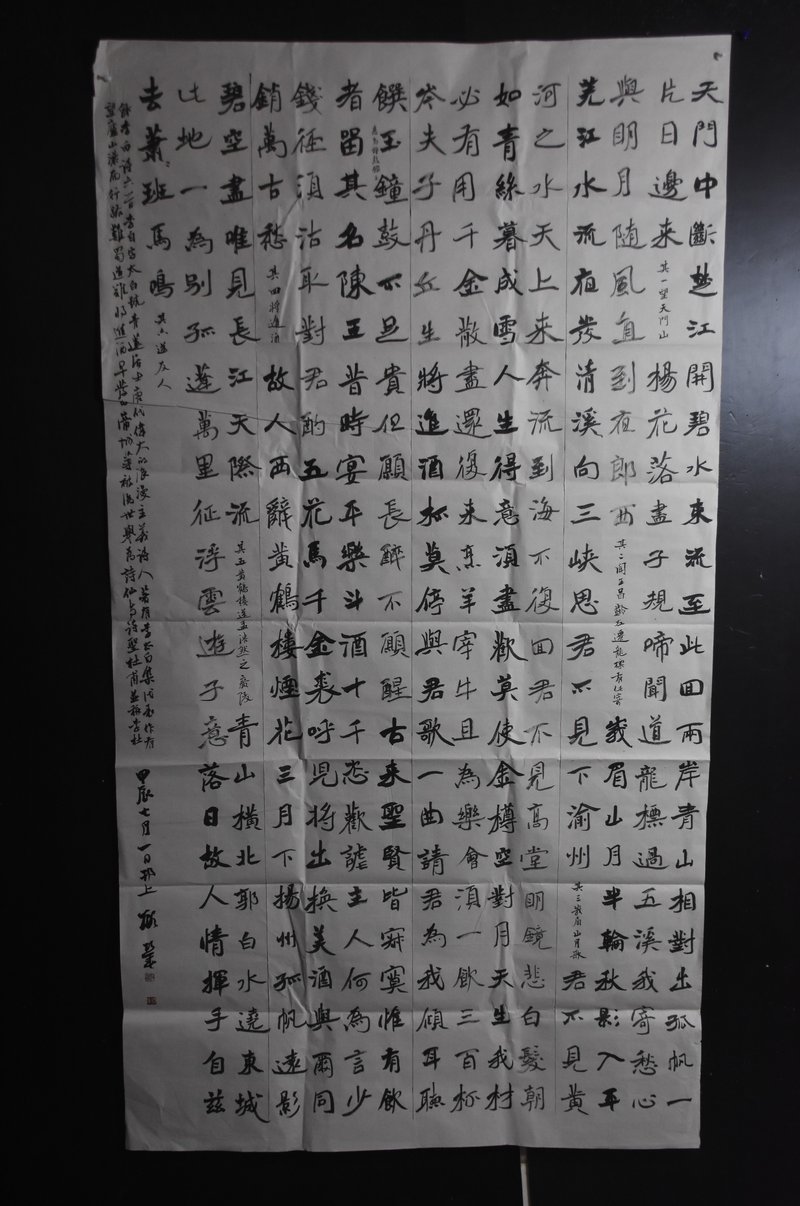 天門中斷楚江開碧水東流至此回兩岸青山相對出孤帆一
片日邊來其一望天門山楊花落盡子規啼聞道龍標過五溪我寄愁心
與明月隨風直到夜郎西其二聞王昌齡左遷龍標有此寄峨眉山月半輪秋影入平
羌江水流夜發清溪向三峽思君不見下渝州其三峨眉山月歌君不見黃
河之水天上來奔流到海不復回君不見高堂明鏡悲白髮朝
如青絲暮成雪人生得意須盡歡莫使金樽空對月天生我材
必有用千金散盡還復來烹羊宰牛且為樂會須一飲三百杯
岑夫子丹丘生將進酒杯莫停與君歌一曲請君為我傾耳聽
饌玉鐘鼓不足貴但願長醉不願醒古來聖賢皆寂寞惟有飲
者留其名陳王昔時宴平樂斗酒十千恣歡謔主人何為言少
錢徑須沽取對君酌五花馬千金裘呼兒將出換美酒與爾同
銷萬古愁其四將進酒故人西辭黃鶴樓煙花三月下揚州孤帆遠影
碧空盡唯見長江天際流其五黃鶴樓送孟浩然之廣陵青山橫北郭白水遶東城
此地一為別孤蓬萬里征浮雲遊子意落日故人情揮手自茲
去蕭蕭班馬鳴其六送友人
錄李白詩六首李白字太白號青蓮居士唐代偉大的浪漫主義詩人著有李太白集代表作有
望廬山瀑布行路難蜀道難將進酒早發白帝城等被後世譽為詩仙與詩聖杜甫並稱李杜
甲辰七月一日於上